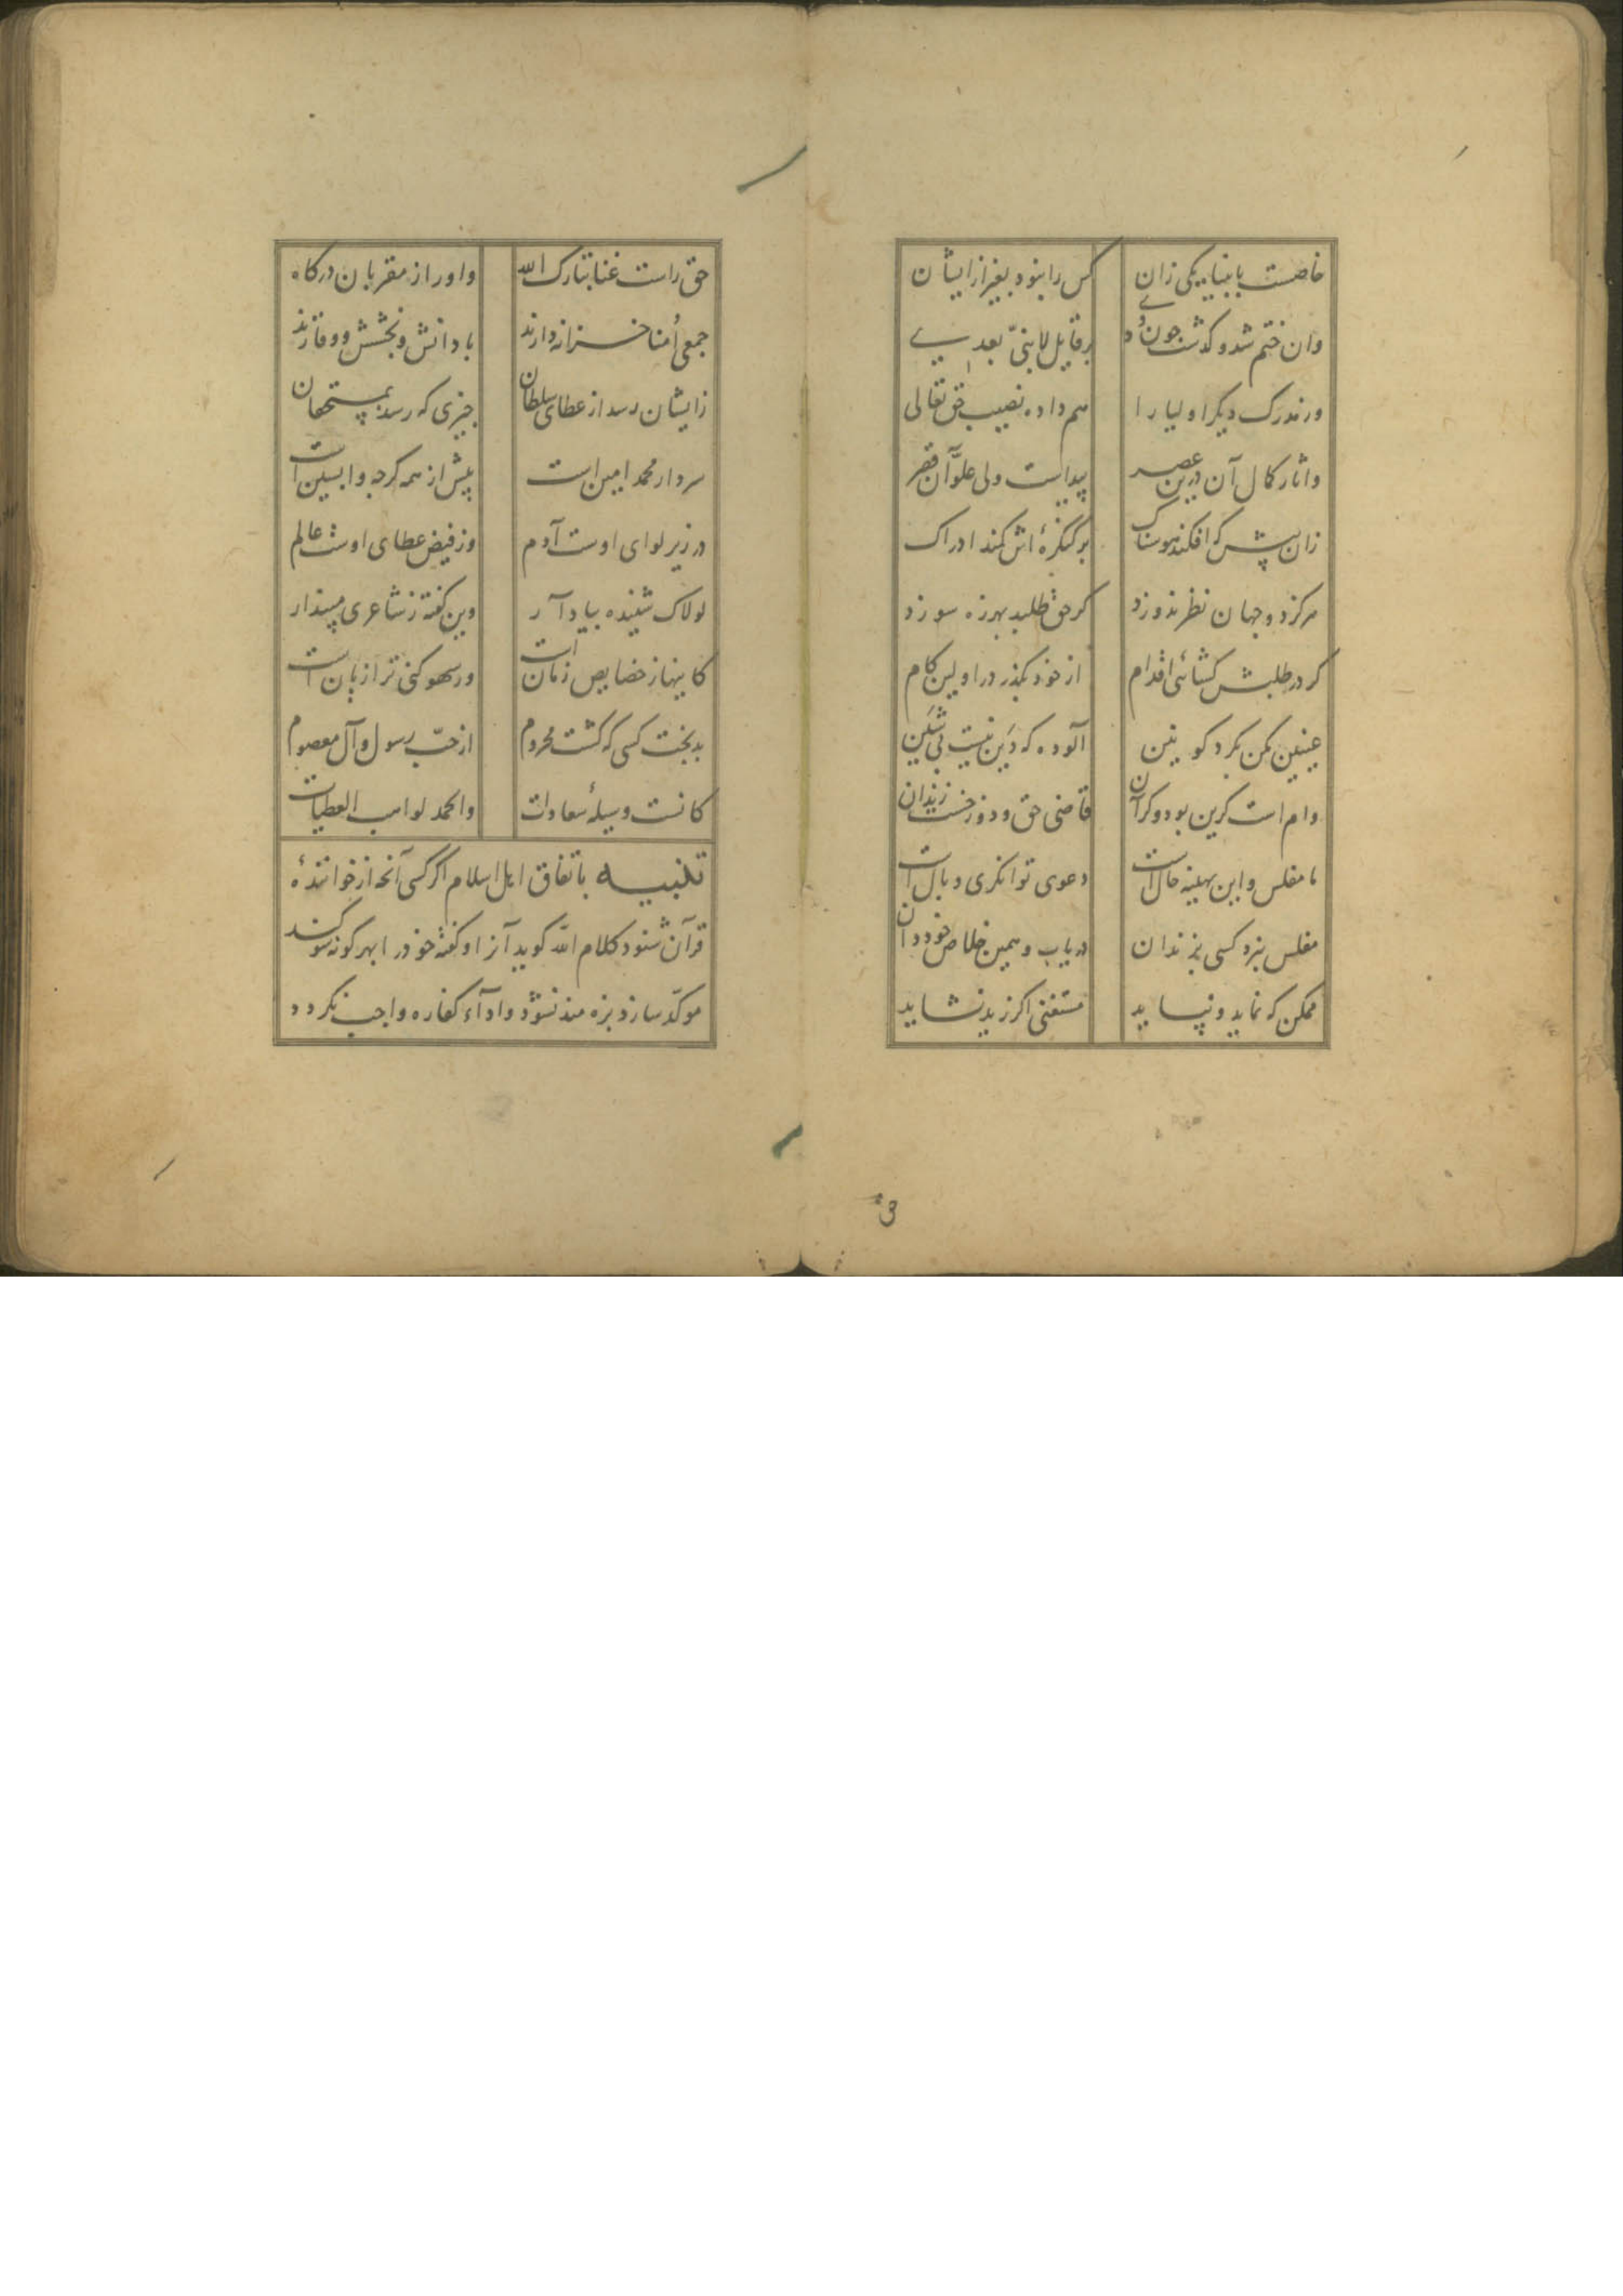 خاصست بانبیا یکی زان کس را نبود بغیر از ایشان
وان ختم شد و کذشت جون وی بر قایل لا نبیّ بعدی
ورند رک دیکر اولیا را هم داده نصیب حق تعالی
واثار کمال آن درین عصر پیداست ولی علوّ آن قصر
زان پیش که افکند هوسناک بر کنکرهٔ اش کمند ادراک
هرکز دو جهان نظر ندوزد کر حق طلبد بهرزه سوزد
کر در طلبش کشائی اقدام از خود بکذر در اولین کام
عینین مکن بکرد کونین آلوده که دَین نیست بی شَین
وام است کزین بود و کر آن قاضی حق و دوزخست زندان
ما مفلس و این بهینه حال است دعوی توانکری وبال است
مفلس نبرد کسی بزندان دریاب و همین خلاص خود دان
ممکن که نماید و نپاید مستغنی اکر زید نشاید
حق راست غنا تبارک الله واو را ز مقربان درکاه
جمعی اُمنا خزانه دارند با دانش و بخشش و وقارند
زایشان رسد از عطای سلطان جیزی که رسد بمستحقان
سردار محمد امین است پیش از همه کرجه واپسین است
در زیر لوای اوست آدم وز فیض عطای اوست عالم
لولاک شنیده بیاد آر وین کفته ز شاعری مپندار
کاینها ز خصایص زمان است ور سهو کنی ترا زیان است
بدبخت کسی که کشت محروم از حبّ رسول و آل معصوم
کانست وسیلهٔ سعادات والحمد لواهب العطیات
تنبیه باتفاق اهل اسلام اکر کسی آنجه از خوانندهٔ
قرآن شنود کلام الله کوید آنرا و کفتهٔ خود را بهر کونه سوکند
موکّد سازد بزه مند نشود و اداء کفاره واجب نکردد